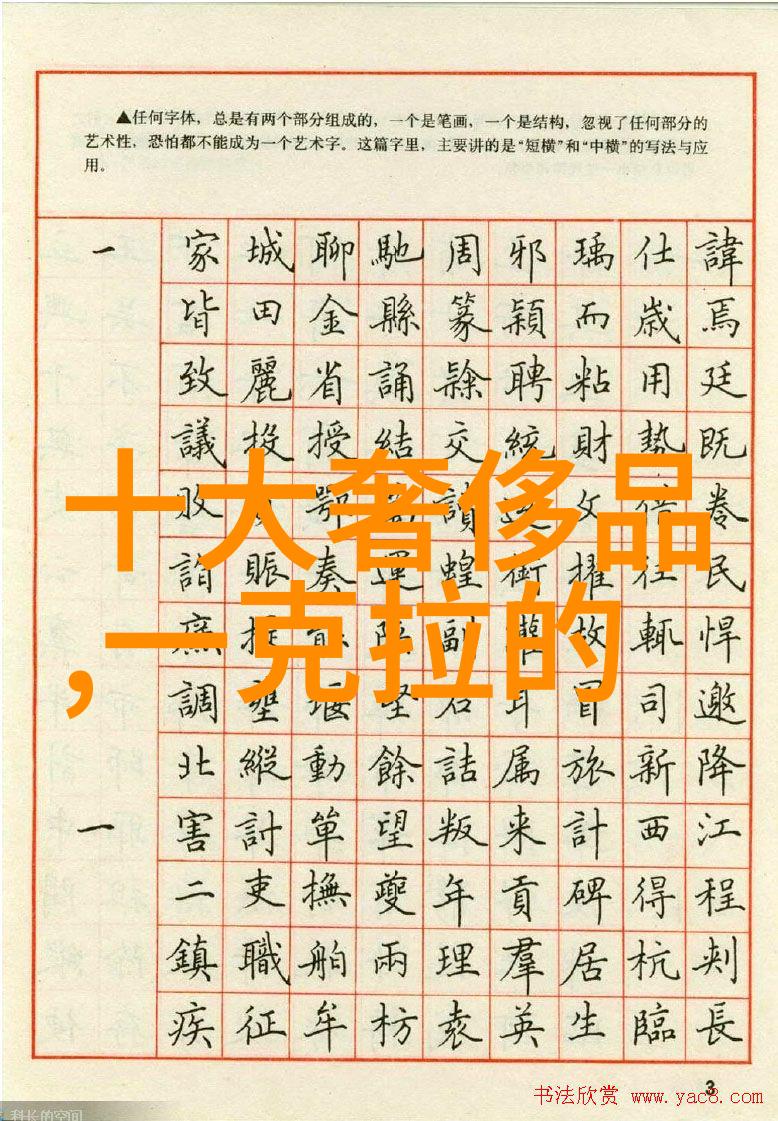 ▲任何字体，总是有两个部分组成的，一个是笔画，一个是结构，忽视了任何部分的
艺术性，恐怕都不能成为一个艺术字。这篇字里，主要讲的是“短横”和“中横”的写法与应
用。
一 家 城 聊 馳 周 邪 瑀 仕 諱
皆 田 金 縣 篆 穎 而 歲 焉
致 麗 省 誦 隸 聘 粘 用 廷
議 投 授 結 交 統 財 勢 既
敗 鄂 讀 文 倍 卷
十大奢侈品
詣 賑 奏 運 蝗 衝 擢 往 民
副 故 輒 悍
,一克拉的
調 壅 堰 堅 石 耳 冒 司 邀
北 縱 動 餘 詰 属 旅 新 降
一 害 討 望 叛 来 計 西 江
二 吏 撫 夔 年 貢 碑 得 程
鎮 職 舶 兩 理 羣 居 杭 刺
疾 征 牟 枋 袁 英 生 臨 長
3
书法欣赏 www.yac8.com
科长的空间